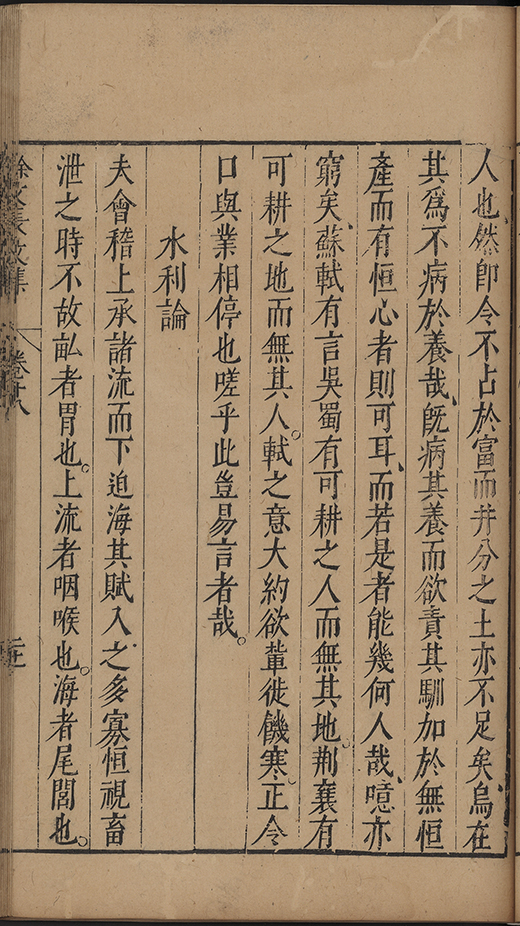 人也然卽令不占於富而井分之土亦不足矣烏在
其爲不病於養哉旣病其養而欲責其馴加於無恒
產而有恒心者則可耳而若是者能幾何人哉噫亦
窮矣蘇軾有言吳蜀有可耕之人而無其地荆襄有
可耕之地而無其人軾之意大約欲輦徙饑寒正令
口與業相停也嗟乎此豈易言者哉
水利論
夫會稽上承諸流而下迫海其賦入之多寡恒視畜
泄之時不故畆者胃也上流者咽喉也海者尾閭也
徐文長文集 卷十八